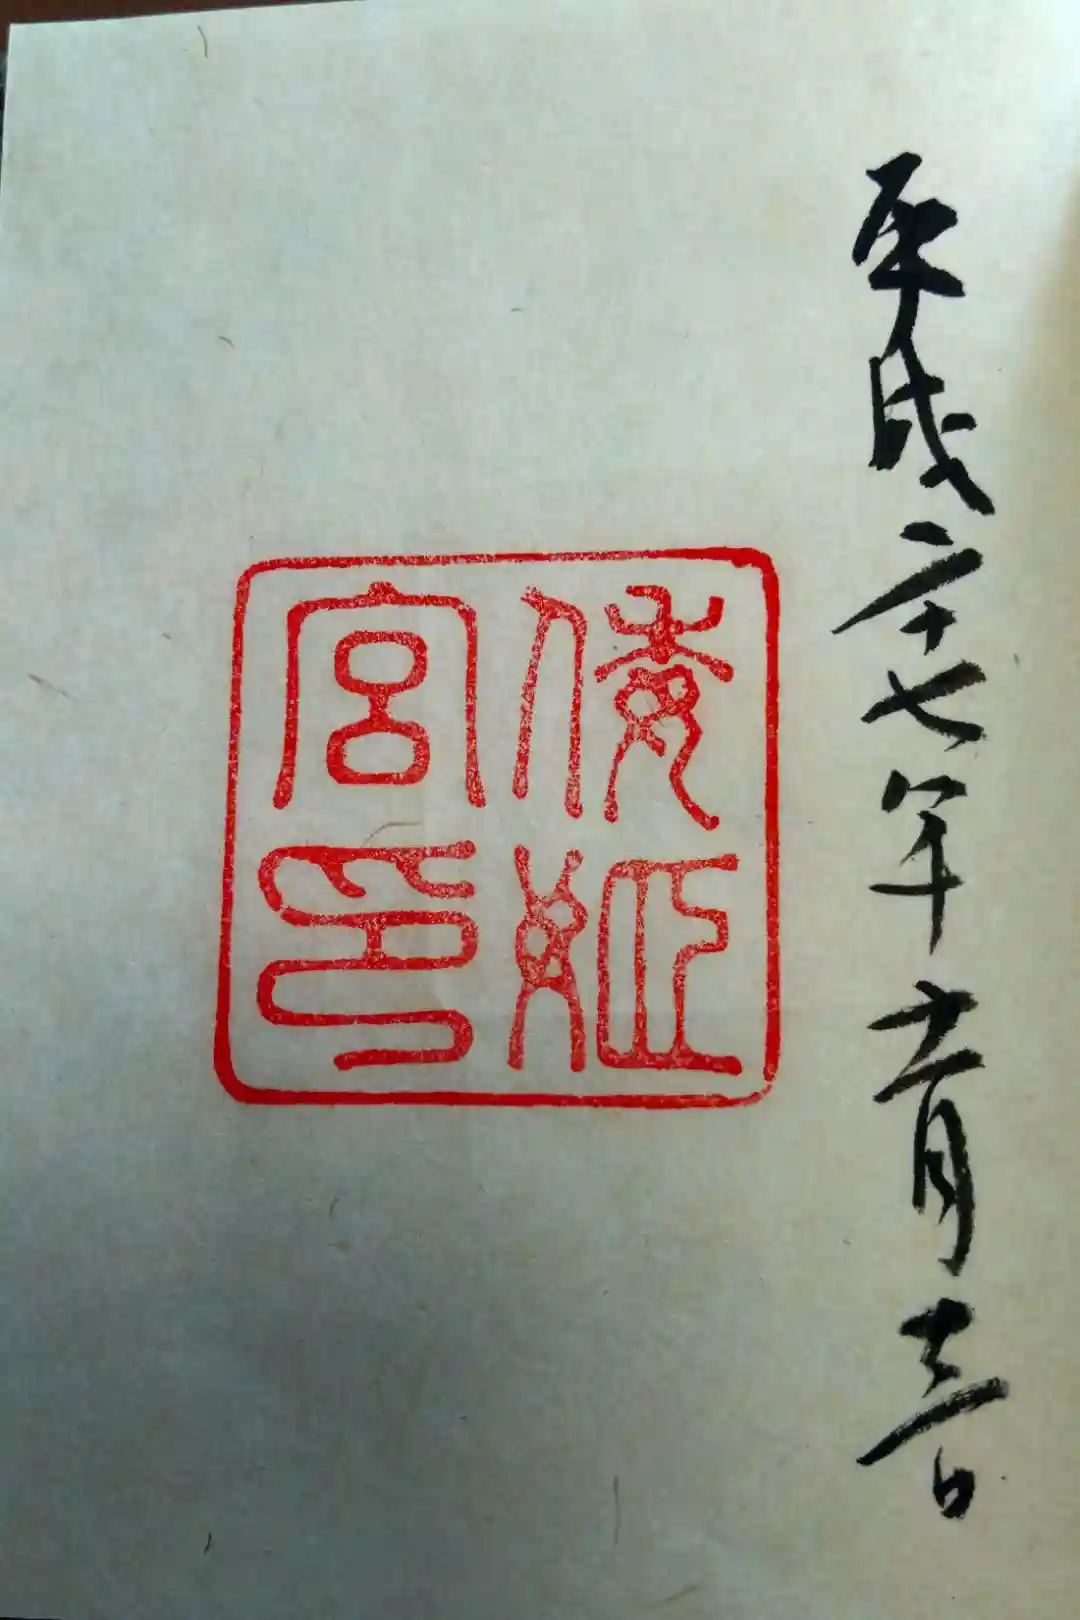 平成二十七年十一月十三日
倭姫
宮印